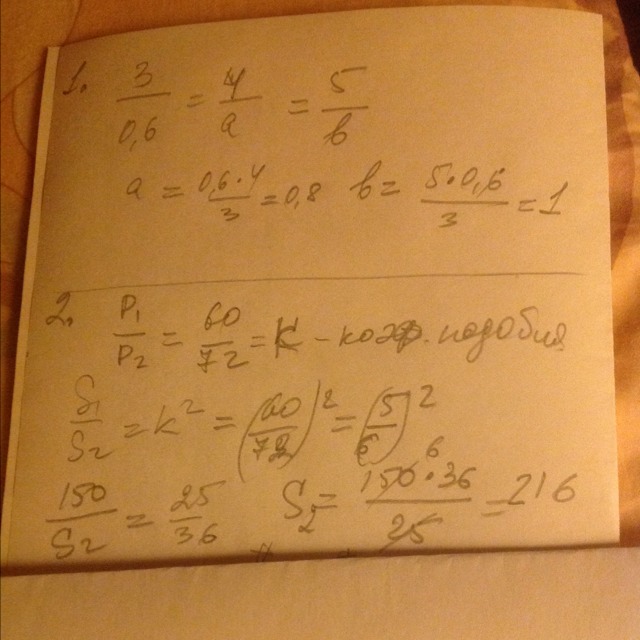 1. 3/0,6 = 4/a = 5/b
a = 0,6·4/3 = 0,8 b = 5·0,6/3 = 1
2. P₁/P₂ = 60/72 = K - коэф. подобия
S₁/S₂ = k² = (60/72)² = (5/6)²
150/S₂ = 25/36 S₂ = 150·36/25 = 216
6